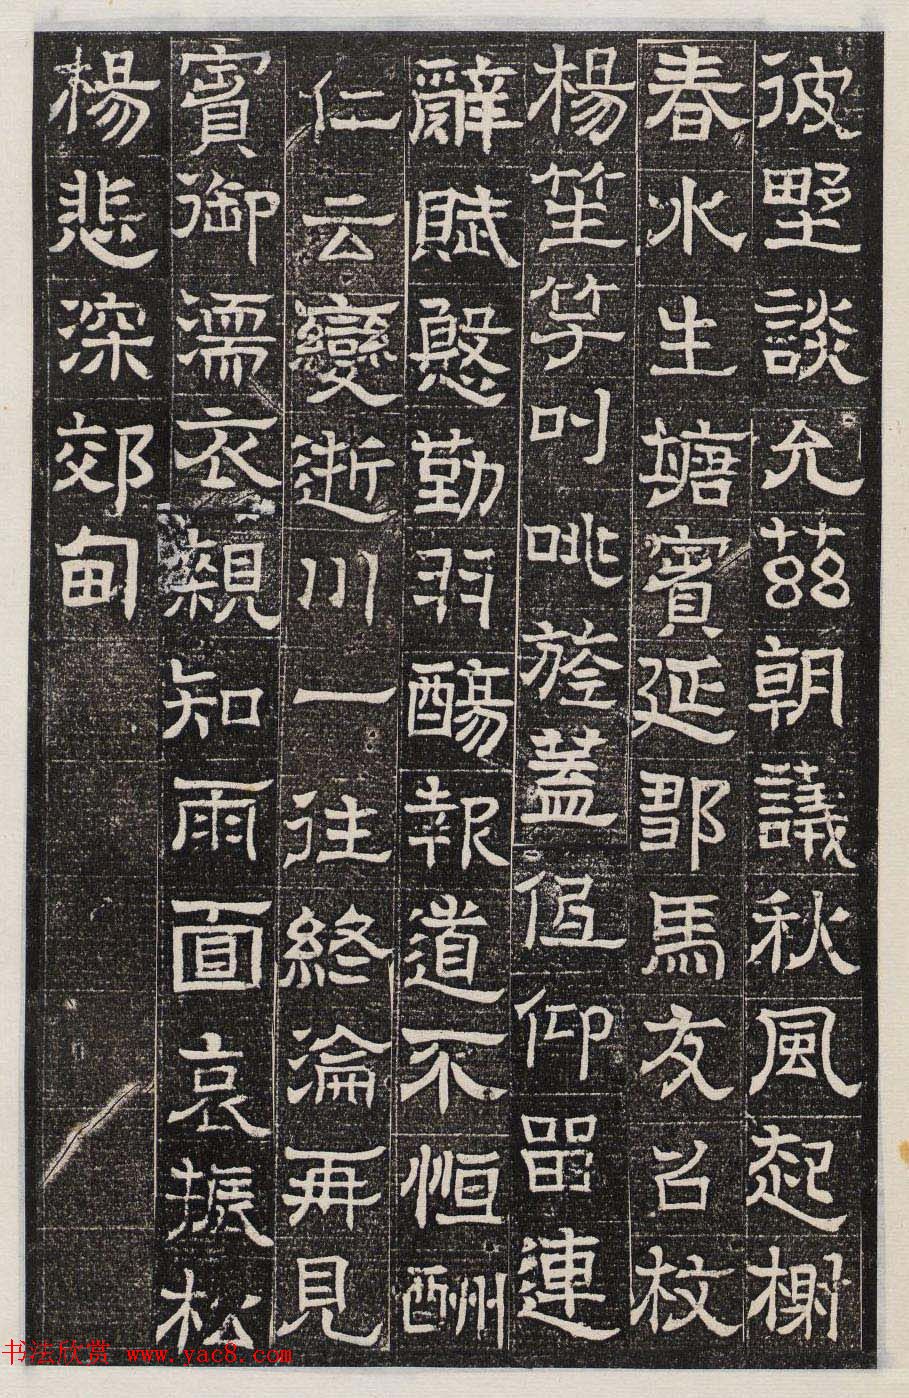 彼野談允茲朝議秋風起榭
春水生塘賓延鄒馬友召枚
楊笙竽叫咷旍蓋伹仰畱連
辭賦慇勤羽觴報道不恒酬
仁云變逝川一往終淪再見
賓御濡衣親知雨面哀振松
楊悲深郊甸
书法欣赏 www.yac8.com